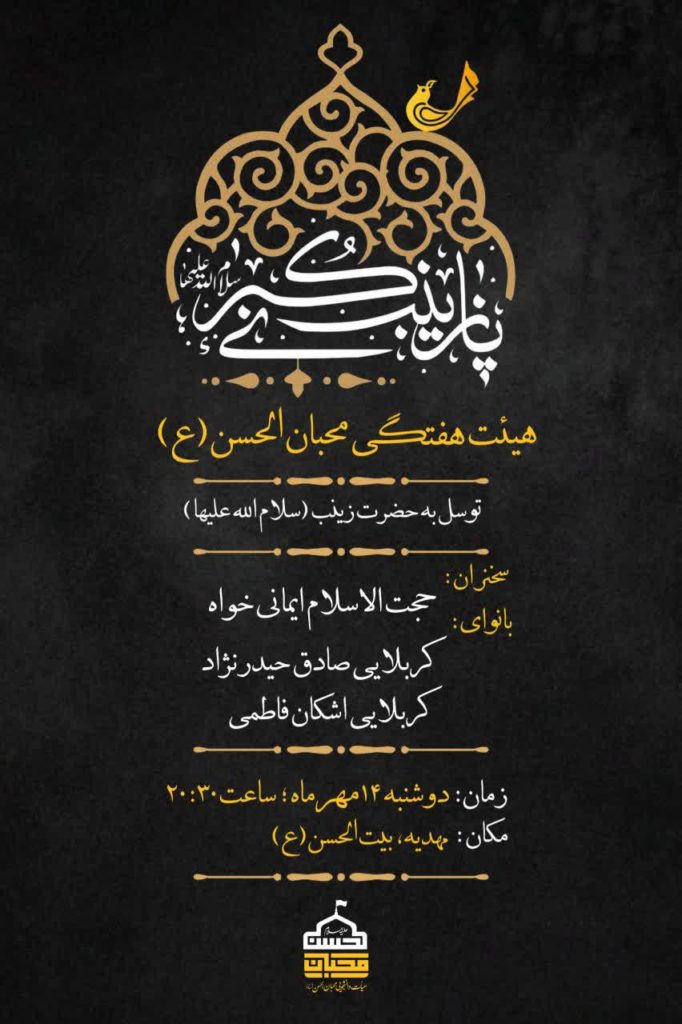 یا زینب کبری
سلام الله علیها
هیئت هفتگی محبان الحسن (ع)
توسل به حضرت زینب (سلام الله علیها)
سخنران:
حجت الاسلام ایمانی خواه
بانوای:
کربلایی صادق حیدرنژاد
کربلایی اشکان فاطمی
زمان: دوشنبه ۱۴ مهر ماه؛ ساعت ۲۰:۳۰
مکان: مهدیه، بیت الحسن (ع)
علیه السلام
حسن
محبان
هیأت دانشجویی محبان الحسن